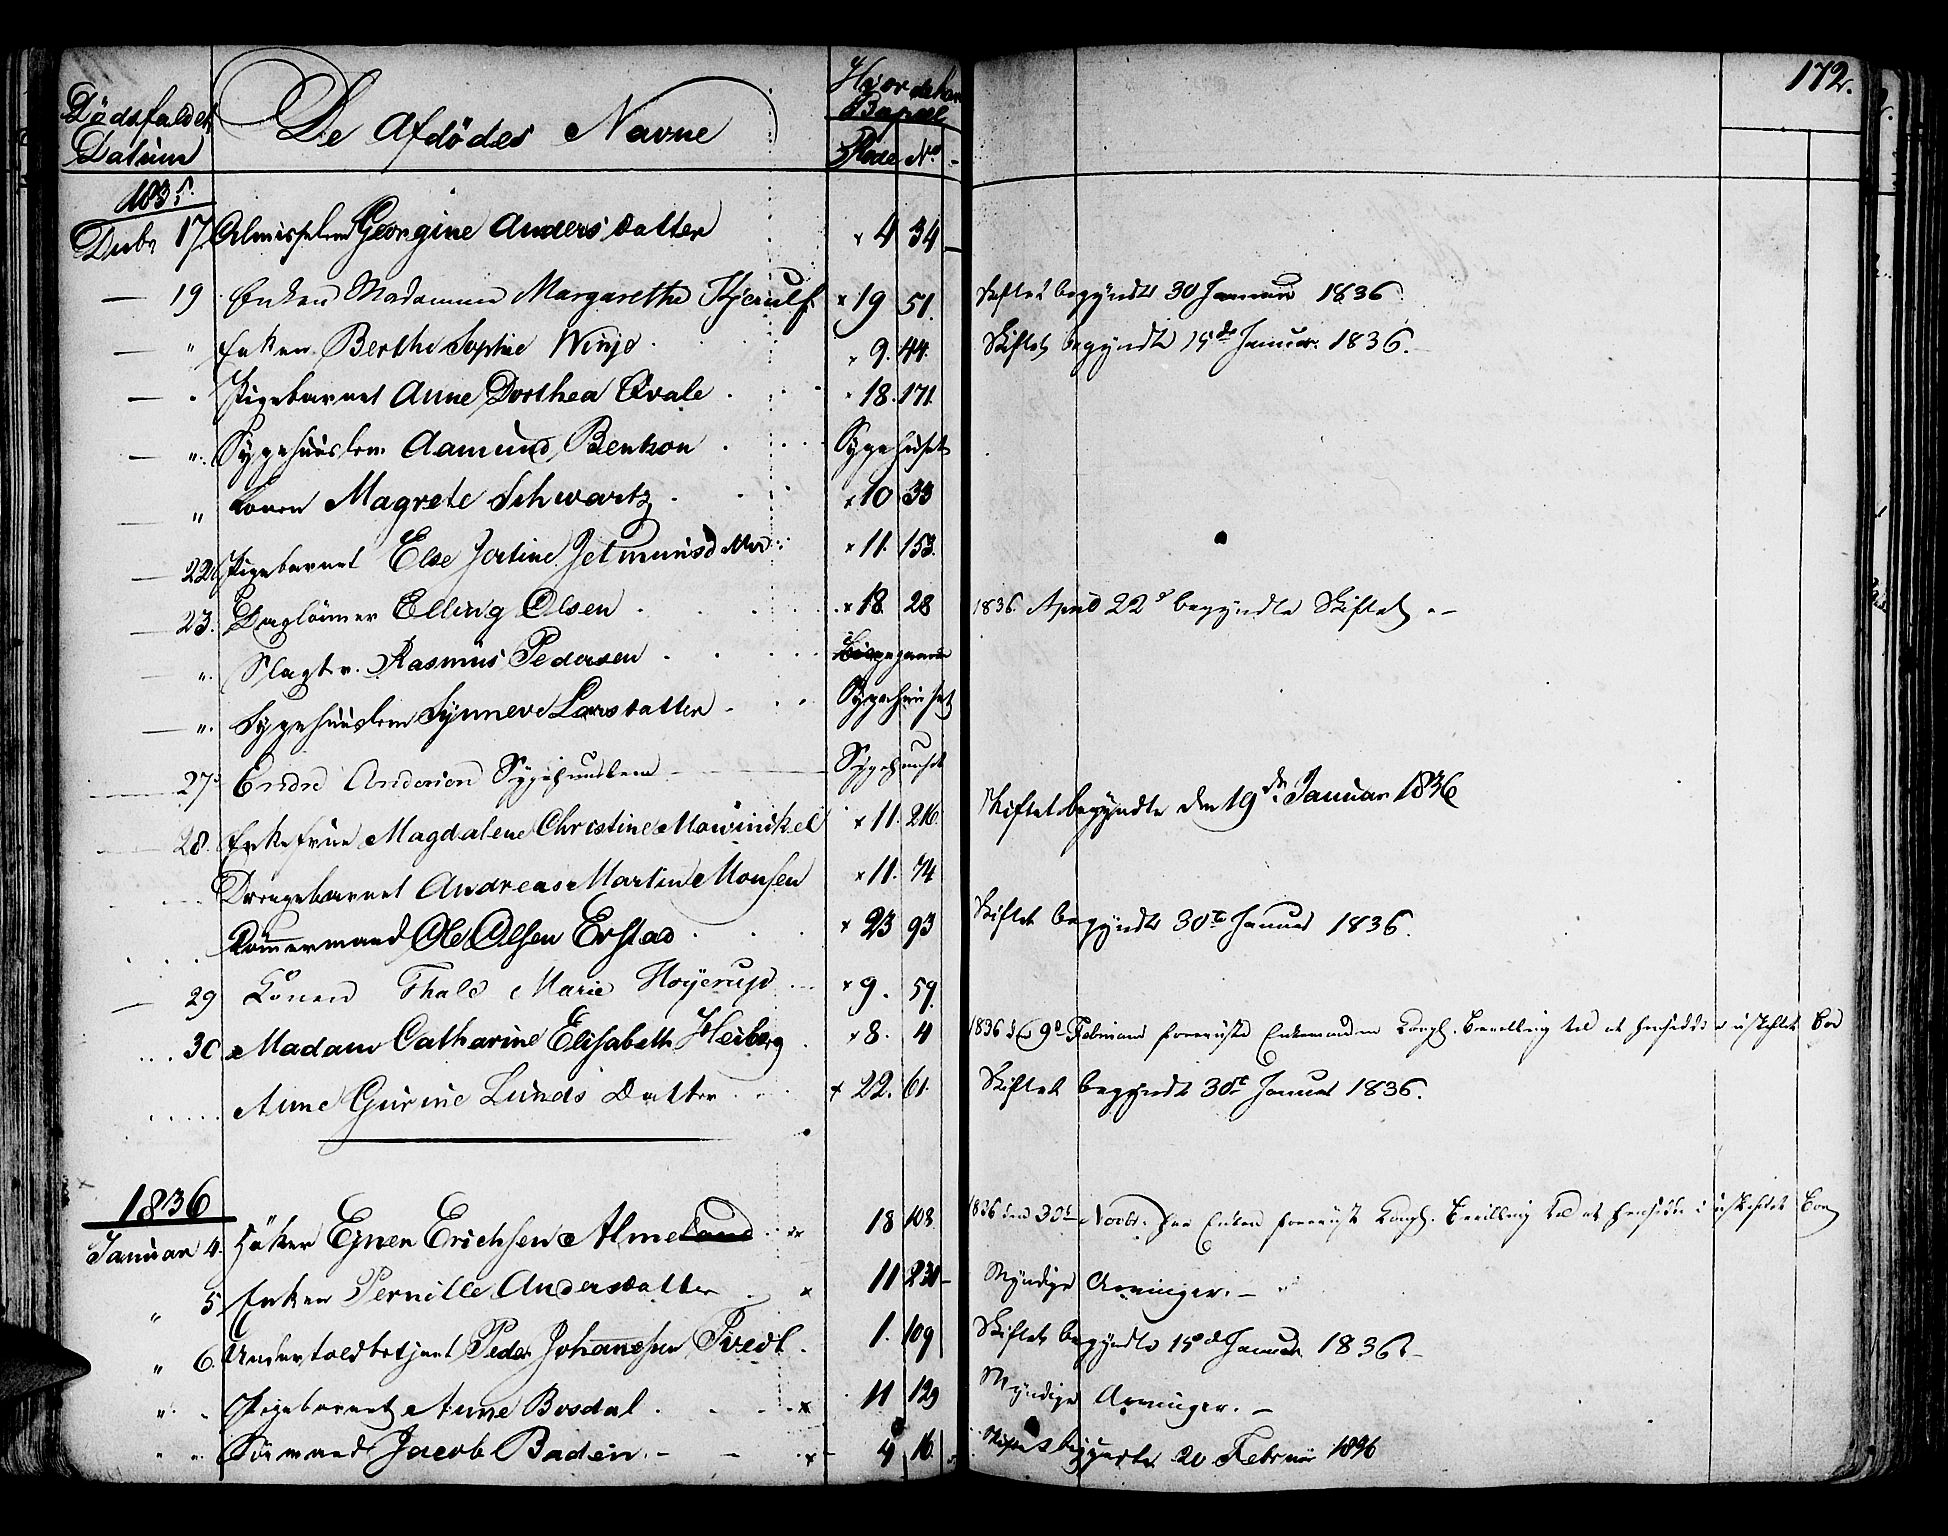 172.
Dödsfaldets Datum
De Afdödes Navne
Hvor de have Bopæl
Rode No
1835.
Decbr 17 Almisselem Georgine Anders datter × 4 34
— 19 Enken Madamme Margarethe Kjerulf × 19 51. Skiftet begyndte 30 Januar 1836
— " Enken Berthe Sophie Winje × 9. 44. Skiftet begyndte 15de Januar 1836.
— " Pigebarnet Anne Dorthea Qvale 18. 171.
— " Sygehuuslem Aamund Bentson Sygehuset
— " Konen Magrete Schwartz × 10 33
— 22 Pigebarnet Else Jertine Jetmunsd × 11. 153.
— 23. Daglönner Elling Olsen × 18 28 1836 April 22d begyndte Skiftet. —
— " Slagter Rasmus Pedersen
— " Sygehuuslem Synneve Larsdatter Sygehuuset
27 Endre Anderson Sygehuuslem Sygehuuset
28. Enkefrue Magdalene Christine Mowinckel × 11. 216. Skiftet begyndte den 19de Januar 1836
Drengebarnet Andreas Martin Monsen × 11. 74
Tömmermand Ole Olsen Erstad × 23 93 Skiftet begyndte 30te Januar 1836.
— 29 Konen Thale Marie Höyerup × 9. 59.
30 Madam Catharine Elisabeth Heiberg × 8. 4 1836 d. 9d Februar foreviiste Enkemanden Kongl. Bevilling til at hensidde i uskiftet Boe
Anne Gurine Lunds Datter × 22. 61. Skiftet begyndte 30te Januar 1836.
1836
Januar 4. Höker Ejner Erichsen Almeland 18 108. 1836 den 30te Novbr. har Enken foreviist Kongl. Bevilling til at hensidde i uskiftet Boe
" 5 Enken Pernille Andersdatter × 11 Myndige Arvinger. —
" 6. Undertoldbetjent Peder Johannesen Tvedt. 1. 109 Skiftet begyndte 15de Januar 1836. —
" Pigebarnet Anne Bosdal × 11 129 Myndige Arvinger. —
" Sörmand Jacob Baden × 4 16. Skiftet begyndte 20 Februar 1836